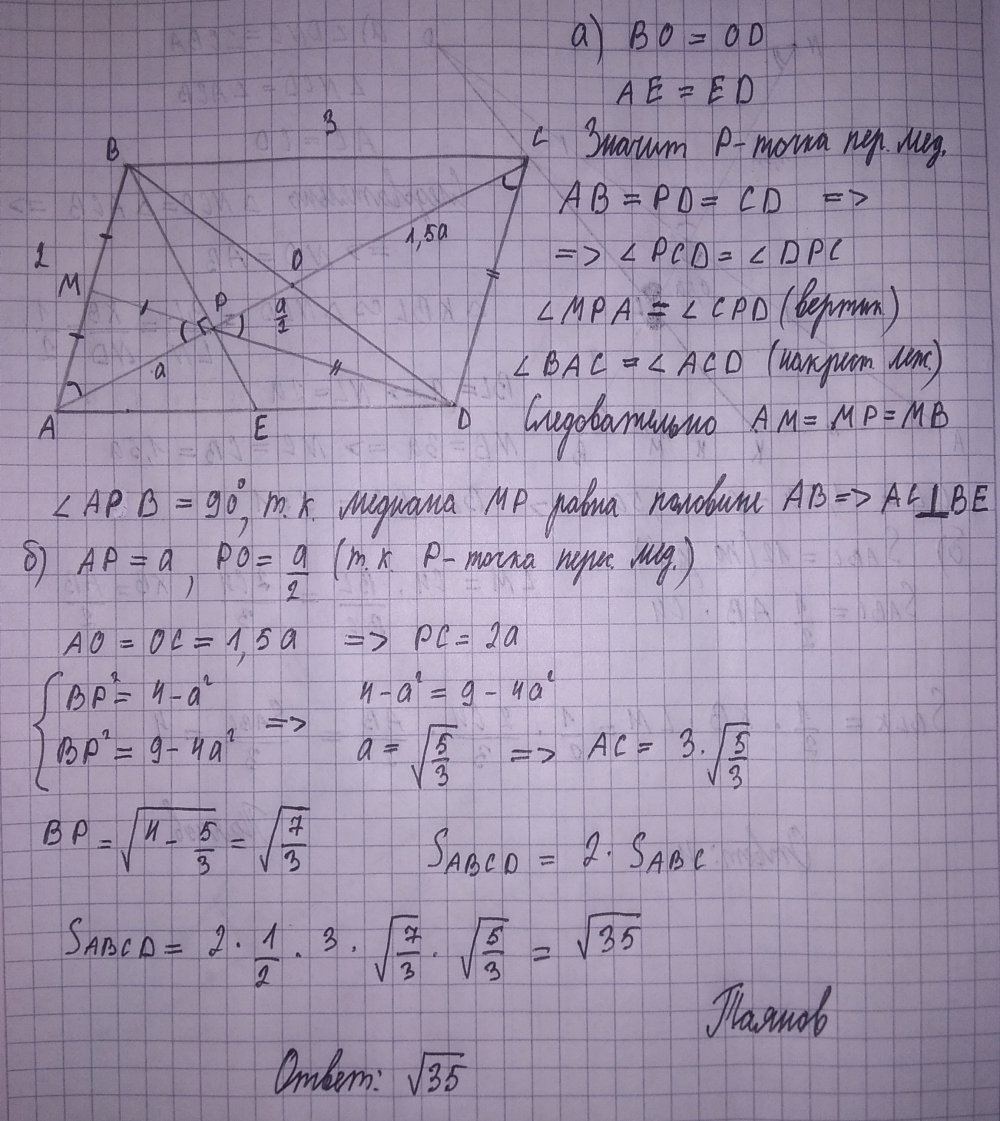 а) BO = OD
AE = ED
Значит P - точка пер. мед.
AB = PD = CD =>
=> ∠PCD = ∠DPC
∠MPA = ∠CPD (вертик)
∠BAC = ∠ACD (накрест леж.)
Следовательно AM = MP = MB
B
3
C
2
M
O
1,5a
P
a/2
a
A
E
D
∠APB = 90°, т.к. медиана MP равна половине AB => AC ⊥ BE
б) AP = a, PO = a/2 (т.к. P - точка перес. мед.)
AO = OC = 1,5a => PC = 2a
{ BP² = 4 - a² => 4 - a² = 9 - 4a²
BP² = 9 - 4a² a = √(5/3) => AC = 3 · √(5/3)
BP = √(4 - 5/3) = √(7/3) S_ABCD = 2 · S_ABC
S_ABCD = 2 · 1/2 · 3 · √(7/3) · √(5/3) = √35
Таянов
Ответ: √35